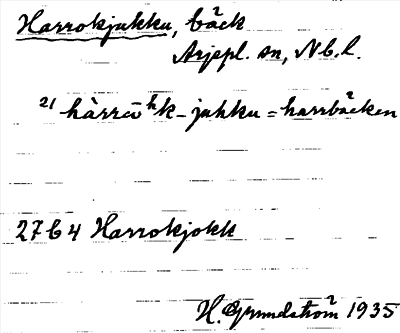 Harrokjukku, bäck
Arjepl. sn, Nb.l.
21 hàrrō ʰk-juhku = harrbäcken
27 G 4 Harrokjokk
H. Grundström 1935